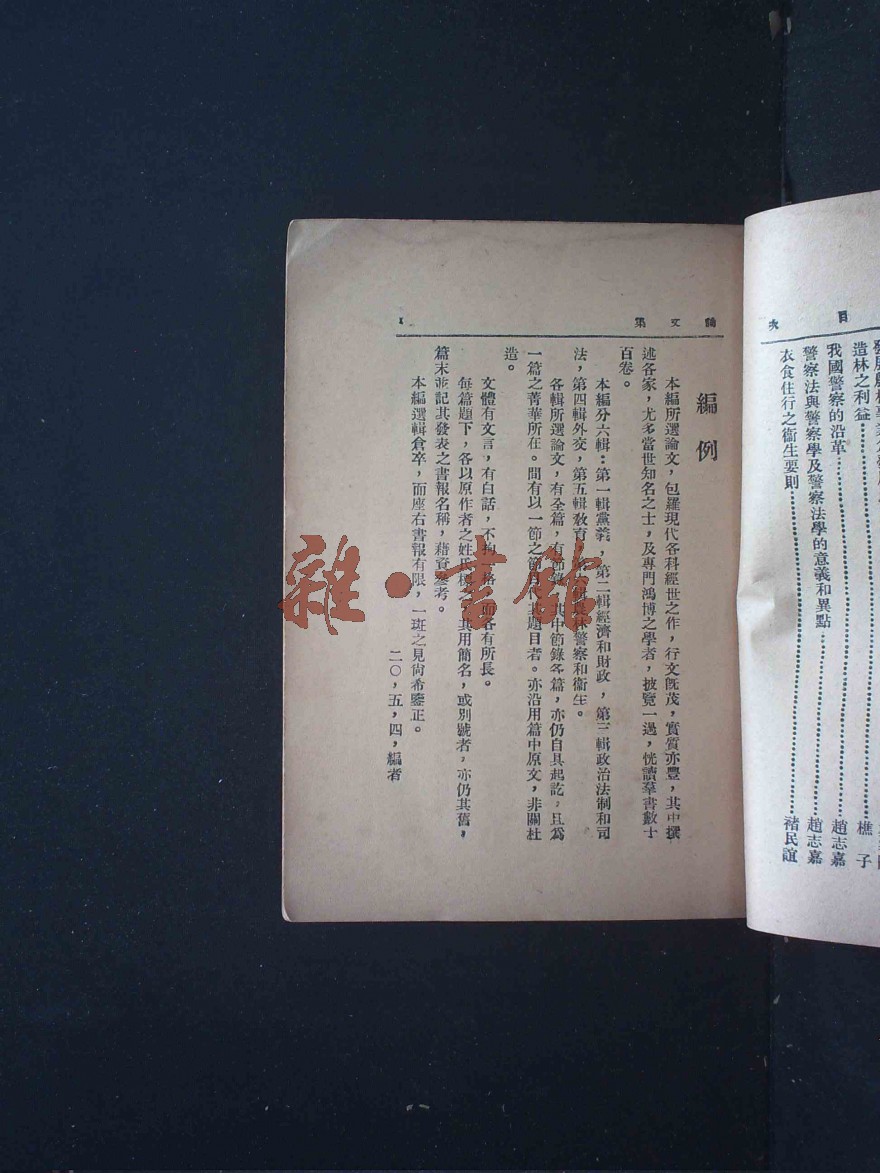 目次
造林之利益 樵子
我國警察的沿革 趙志嘉
警察法與警察學及警察法學的意義和異點 趙志嘉
衣食住行之衞生要則 褚民誼
論文集
1
編例
本編所選論文，包羅現代各科經世之作，行文旣茂，實質亦豐，其中撰
述各家，尤多當世知名之士，及專門鴻博之學者，披覽一過，恍讀羣書數十
百卷。
本編分六輯：第一輯黨義，第二輯經濟和財政，第三輯政治法制和司
法，第四輯外交，第五輯敎育，第六輯農林警察和衞生。
各輯所選論文，有全篇，有節錄，其中節錄各篇，亦仍自具起訖，且爲
一篇之菁華所在。間有以一節之節目作其題目者。亦沿用篇中原文，非關杜
造。
文體有文言，有白話，不拘一格，而各有所長。
每篇題下，各以原作者之姓氏標之，其用簡名，或別號者，亦仍其舊，
篇末並記其發表之書報名稱，藉資參考。
本編選輯倉卒，而座右書報有限，一斑之見尙希鑒正。
二〇，五，四，編者
雜·書館